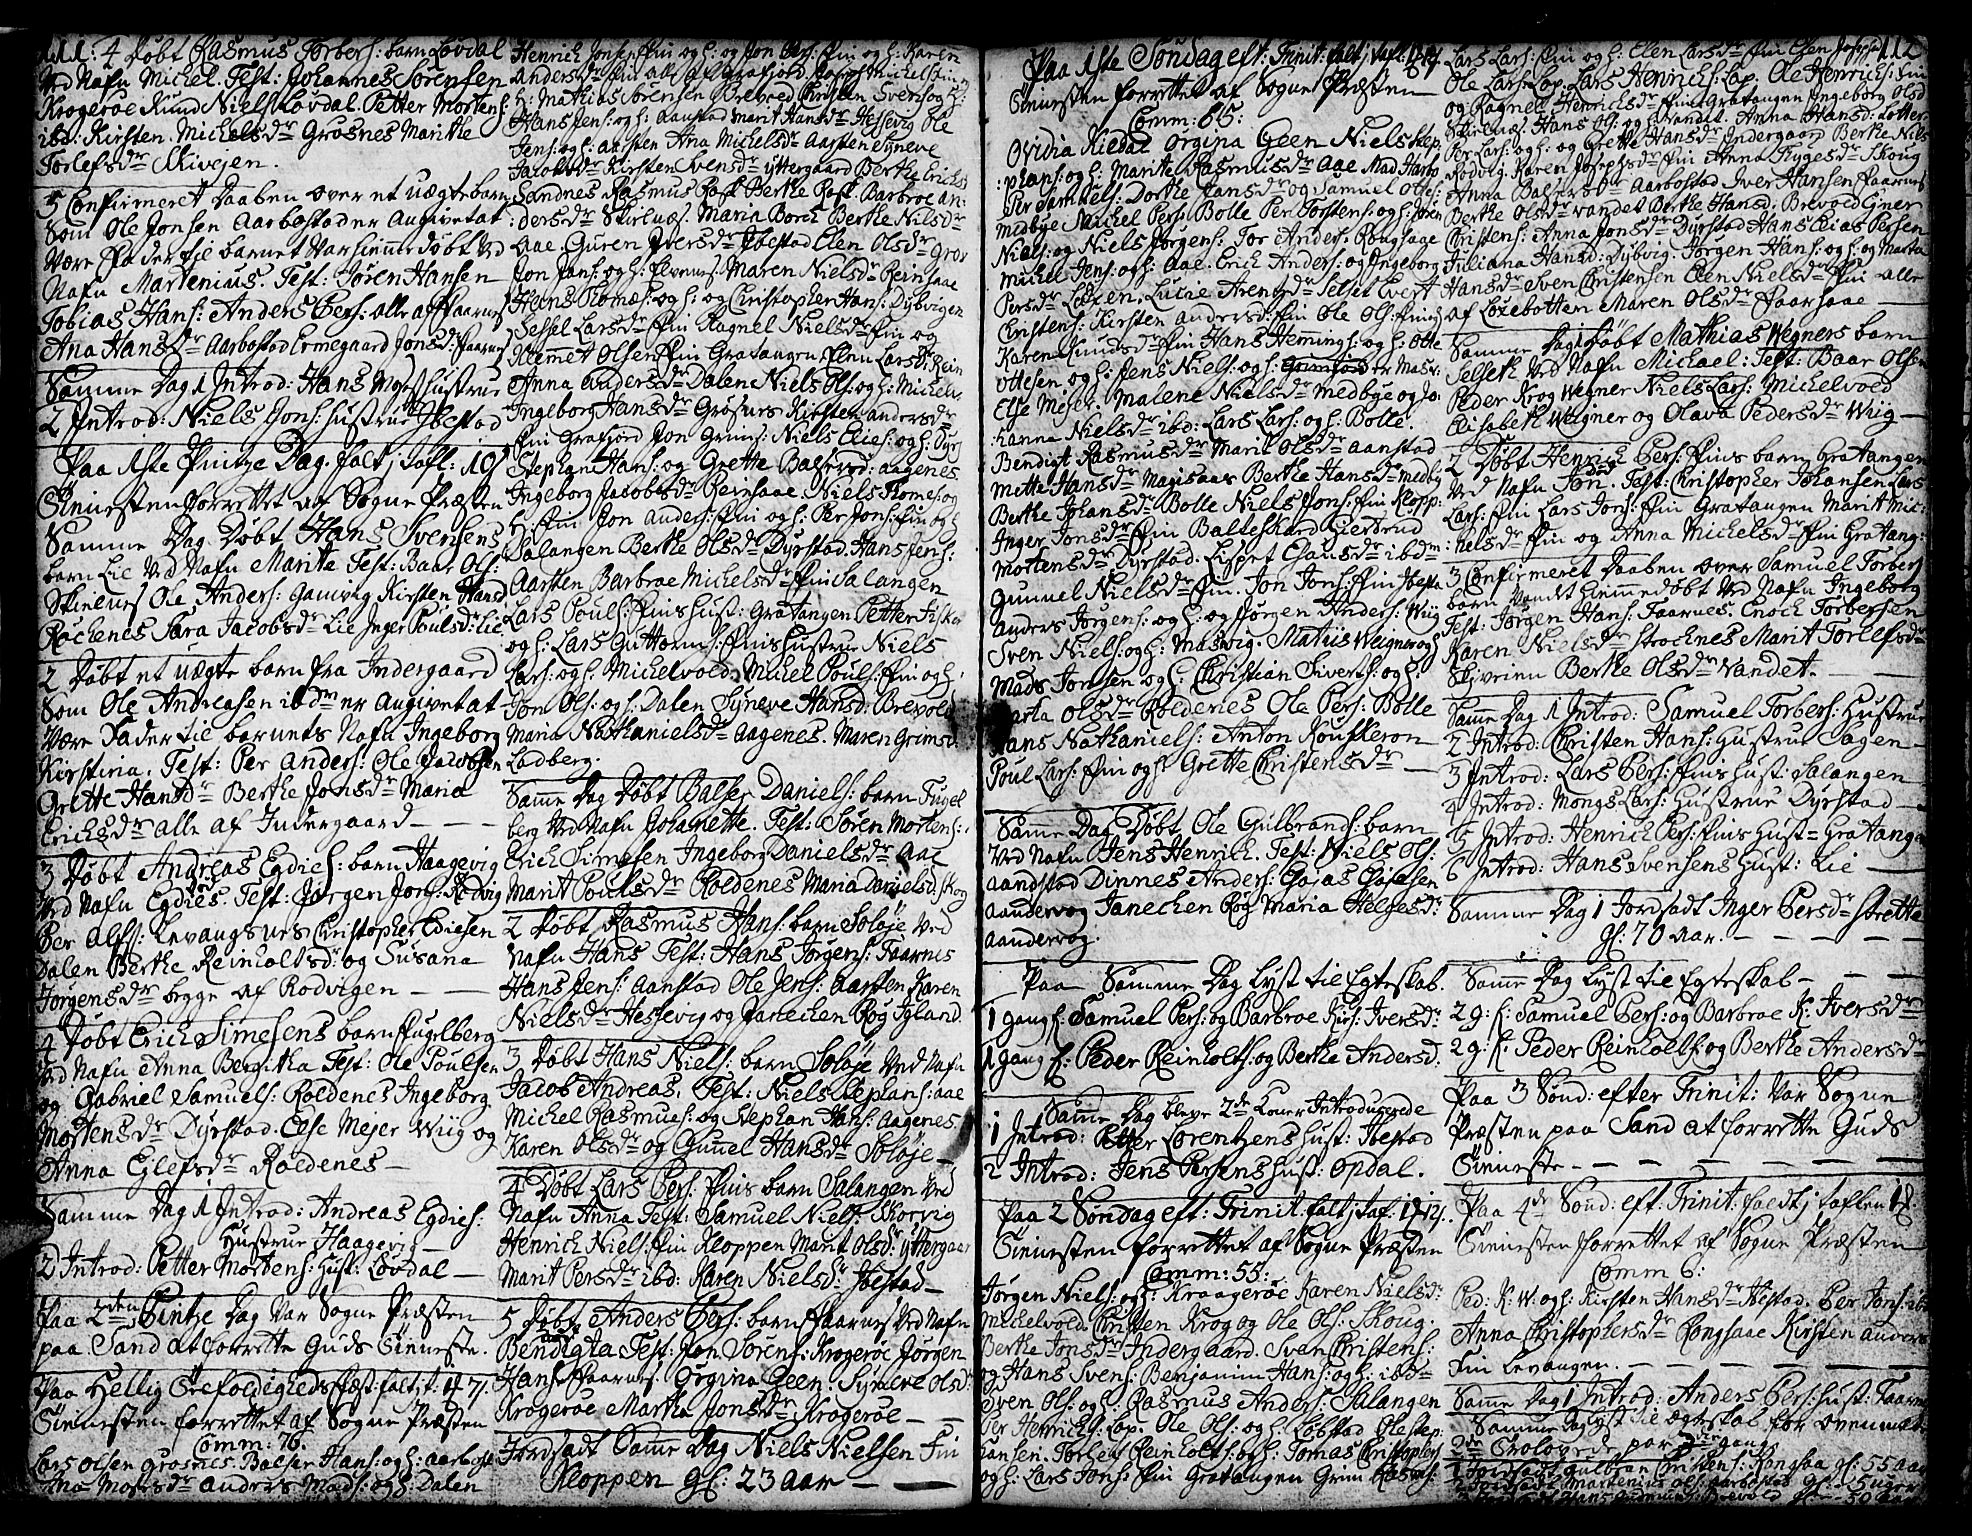 111: 4 Døbt Rasmus Torbers: barn Løvdal
Ved Nafn Michel. Test: Johannes Sørensen
Krogerøe Knud Niels: Løvdal. Petter Mortens:
ibd: Kirsten Michelsdr Grosnes Marithe
Torlefsdr Skivesen.
5 Confirmeret Daaben over et uægte barn
Som Ole Jonsen Aarbostad er Angivet at
Være Fader til barnet Var hiemme døbt Ved
Nafn Martenius. Test: Søren Hansen
Tobias Hans: Anders Pers: alle af Faarnes
Ana Hansdr Aarbostad Ermegaard Jonsd: Faarnes
Samme Dag 1 Introd: Hans hustrue
2 Introd: Niels Jons: hustrue Ibestad
Paa 1ste Pintze Dag. falt i Tafl: 101
Tienesten forrettet af Sogne Præsten
Samme Dag Døbt Hans Svensens
barn Lie Ved Nafn Marite Test: Baar Ols:
Skirlnes Ole Anders: Gamvig Kirsten Hansd
Røckenes Sara Jacobsdr Lie Inger Poulsdr Lie
2 Døbt et uægte barn fra Indergaard
Som Ole Andreasen ibdm er Angivet at
Være Fader til barnets Nafn Ingeborg
Kirstina. Test: Per Anders: Ole Jacobsen
Grette Hansdr Berthe Jonsdr Maria
Erichsdr alle af Indergaard
3 Døbt Andreas Egdies: barn Haagevig
Ved Nafn Egdies. Test: Jørgen Jons: Rodvig
Per Alfs: Levangsnes Christopher Ediesen
Dalen Berthe Reinholtsdr og Susana
Jørgensdr begge af Rodvigen
4 Døbt Erich Simesens barn Fuglberg
Ved Nafn Anna Bergitha Test: Ole Poulsen
og Gabriel Samuels: Roldenes Ingeborg
Mortensdr Dyrstad. Else Mejer Wiig og
Anna Eilefsdr Roldenes
Samme Dag 1 Introd: Andreas Egdies:
Hustrue Haagevig
2 Introd: Petter Mortens: hust: Løvdal
Paa 2den Pintze Dag Var Sogne Præsten
paa Sand at forrette Guds Tieneste.
Paa Hellig Trefoldigheds fæst: falt i t: 47.
Tienesten forrettet af Sogne Præsten
Comm: 70.
Lars Olsen Grosnes. Balser Hans: og h: aarbost
Ana Mosesdr anders Mads: og h: Dalen
Henrich Jons: fin og h: og Jon Pers: fin og h: Karen
Andersdr fin alle af Grafjord Michels:
h: Mathias Sørensen Brevoed Christen Svens: og h:
Hans Jens: og h: Aanstad Marit Hansdr Hessevig Ole
Jens: og h: Aasten Ana Michelsdr Aasten Syneve
Jacobsdr Kirsten Svensdr Yttergaard Berthe Erichsd
Sandnes Rasmus Rost Berthe Rost. Barbroe An:
:dersdr Skirlnes. Maria Borch Berthe Nilsdr
Aae. Guren Iversdr Ibestad Elen Olsdr Grov
Jon Jons: og h: Elvenes. Maren Nielsdr Reinsaae
Hans Thomas: og h: og Christopher Hans: Dybvigen
Sessel Larsdr fin Ragnel Nielsdr fin og
Klemmet Olsen fin Gratangen Elen Larsdr Rein
Anna Andersdr Dalen Niels Ols: og h: Michelv.
Ingeborg Hansdr Grosnes Kirsten Andersdr
fin Grafjord Jon Grims: Niels Elies: og h: Dyrs
Stephan Hans: og Grette Balsersd: Aagenes.
Ingeborg Jacobsdr Reinsaae: Niels Thomes: og
h: fin Jon Anders: fin og h: Per Jons: fin og h
Salangen Berthe Olsdr Dyrstad. Hans Jens:
Aarsten Barbroe Michelsdr fin Salangen
Lars Pouls: fins hust: Gratangen Petter Fisker
og h: Lars Guttorms: fins hustrue Niels
Lars: og h: Michelvold. Michel Pouls: fin og h:
Jon Ols: og h: Dalen Syneve Hansd: Brevold
Maria Nathanielsdr Aagenes. Maren Grimsd:
Ladberg.
Samme Dag Døbt Balser Daniels: barn Fugel
berg Ved Nafn Johanette. Test: Søren Mortens:
Erich Simesen Ingeborg Danielsdr Aae
Marit Poulsdr Roldenes Maria Danielsd: Skog
2 Døbt Rasmus Hans: barn Soløje Ved
Nafn Hans Test: Hans Jørgens: Faarnes
Hans Jens: Aanstad Ole Jens: Aarsten Karen
Nielsdr Hessevig og Janechen Røg Igland.
3 Døbt Hans Niels: barn Soløje Ved Nafn
Jacob Andreas. Test: Niels Stephans: aae
Michel Rasmus: og Stephan Hans: Aagenes.
Karen Olsdr og Gunel Hansdr Soløje
4 Døbt Lars Pers: fins barn Salangen Ved
Nafn Anna Test: Samuel Niels: Skorvig
Henrich Niels: fin Kloppen Marit Olsdr Yttergaar
Marit Persdr ibd: Karen Nielsdr Ibestad
5 Døbt Anders Pers: barn Faarnes Ved Nafn
Bendigta Test: Jon Sørens: Krogerøe Jørgen
Hans: Faarnes. Orgina Geen: Syneve Olsd:
Krogerøe Martha Jonsdr Krogerøe
Jordsadt Samme Dag Niels Nielsen Fin
Kloppen gl: 23 aar
Paa 1ste Søndag eft: Trinit: falt i tafl:
Tienesten forrettet af Sogne Præsten
Comm: 65:
Ovidia Kildal Orgina Geen Niels Step
:phans: og h: Marite Rasmusdr Aae Mad
Per Samuels: Dorthe Hansdr og Samuel Ols:
Medbye Michel Pers: Bolle Per Torstens: og h:
Niels: og Niels Jørgens: Tor Anders: Rongsaae
Michel Jens: og h: Aae. Erich Anders: og Ingeborg
Persdr Løxen. Lucie Arentsdr Selset Evert
Christens: Kirsten Andersd: fin Ole Ols: fin og
Karen Knudsdr fin Hans Hemings: og h: Ole
Ottesen og h: Jens Niels: og h:
Else Mejer. Malene Nielsdr Medbye og Jo:
:hanne Nielsdr ibd: Lars Lars: og h: Bolle.
Bendigt Rasmusdr Marit Olsdr Aanstad
Mette Hansdr Magisaas Berthe Hansdr Medby
Berthe Johansdr Bolle Niels Jons: fin Klopp:
Inger Jonsdr fin Balteskard Giertrud
Mortensdr Dyrstad. Lisbet Clausdr ibdm
Gunnel Nielsdr fin. Jon Jons: fin Ibesta
Anders Jørgens: og h: og Jørgen Anders: Wiig
Sven Niels: og h: Masvig. Mathis Wegner og h
Mads Jonsen og h: Christian Sivers: og h:
Marta Olsdr Roldenes Ole Pers: Bolle
Hans Nathaniels: Anton Roufleron
Poul Lars: fin og h: Grette Christensdr
Samme Dag Døbt Ole Gulbrands: barn
Ved Nafn Jens Henrich. Test: Niels Ols:
Aandstad Dinnes Anders: Esaias Esajesen
Aandervog Janechen Røg Maria Helgesdr
Aandervog.
Paa Samme Dag Lyst til Egteskab.
1 gang f: Samuel Pers: og Barbroe Kirs: Iversdr:
1 gang f: Peder Reinholts: og Berthe Andersd:
Samme Dag bleve 2de koner Introducerede
1 Introd: Petter Lorentzens hust: Ibestad
2 Introd: Jens Persens hust: Opdal.
Paa 2 Søndag eft: Trinit: falt i taf:
Tienesten forrettet af Sogne Præsten
Comm: 55:
Jørgen Niels: og h: Kraagerøe Karen Nielsd:
Michelvold Christen Krog og Ole Ols: Skoug.
Berthe Jonsdr Indergaard. Svan Christens:
og Hans Svens: Benjamin Hans: og h: ibd
Sven Ols: og h: Rasmus Anders: Salangen
Per Henrichs: Lop. Ole Ols: og h: Lobstad Ole Step:
hansen. Torlew Reinholts: og h: Tomas Christophers
og h: Lars Jons: fin Gratangen Grim Rasmus:
112
Lars Lars: fin og h: Elen Larsdr fin Elen
Ole Lars: Lop. Lars Henrichs: Lap. Ole Henrichs: fin
og Ragnel Henrichsdr fin Gratangen Ingeborg Olsd
Skirlnes. Hans Ols: og h: Vandet. Anna Hansd:
Per Lars: og h: og Grette Hansdr Indergaard Berthe Nils
Rodvig. Karen Josephsdr fin Anna Thygesdr Skoug
Anna Balsersdr Aarbostad Iver Hansen Faarnes
Berthe Olsdr Vandet Berthe Hansd: Brevold Gner
Christens: Anna Jonsdr Dyrstad Hans Elias Persen
Juliana Hansd: Dybvig. Jørgen Hans: og h: og Marta
Hansdr Sven Christensen Elen Nielsdr fin alle
af Løxebotten Maren Olsdr Faarsaae
Samme Dag 1 Døbt Mathias Wegners barn
Selseth Ved Nafn Michael: Test: Baar Olsen
Peder Krog Wegner Niels Lars: Michelvold
Elisabeth Wegner og Olava Pedersdr Wiig
2 Døbt Henrich Pers: fins barn Gratangen
Ved Nafn Jon. Test: Christopher Johansen Lars
Lars: fin Lars Jons: fin Gratangen Marit Mic:
:helsdr fin og Anna Michelsdr fin Gratang:
3 Confirmeret Daaben over Samuel Torbers:
barn Vandet hiemmedøbt Ved Nafn Ingeborg
Test: Jørgen Hans: Faarnes. Enoch Torbersen
Karen Nielsdr Strocknes Marit Torlefsdr
Skjvelen Berthe Olsdr Vandet.
Samme Dag 1 Introd: Samuel Torbers: Hustrue
2 Introd: Christen Hans: hustrue Tagen
3 Introd: Lars Pers: fins hust: Salangen
4 Introd: Mongs Lars: hustrue Dyrstad
5 Introd: Henrich Pers: fins hust: Gratange
6 Introd: Hans Svensens hust: Lie
Samme Dag 1 Jordsadt Inger Persdr Strette
gl: 70 aar.
Samme Dag Lyst til Egteskab
2 g: f: Samuel Pers: og Barbroe K: Iversdr
2 g: f: Peder Reinholts: og Berthe Andersdr
Paa 3 Sønd: efter Trinit: Var Sogne
Præsten paa Sand at forrette Guds
Tieneste
Paa 4de Sønd: eft: Trinit: faldt i taflen 18.
Tienesten forrettet af Sogne Præsten
Comm 6:
Ped: K: W: og h: Kirsten Hansdr Ibestad. Per Jons: ibd
Anna Christophersdr Rongsaae Kirsten Anders
Fin Levangen.
Samme Dag 1 Introd: Anders Pers: hust: Faarnes
Samme Dag Lyst til ægteskab for ovenmelt
2de Trolovede par 3die gang
1 Jordsadt Gulbran Christens: Rongsaa gl: 55 aar
2 Jordsadt Martenius Ols: Aarbostad gl: 5 uger